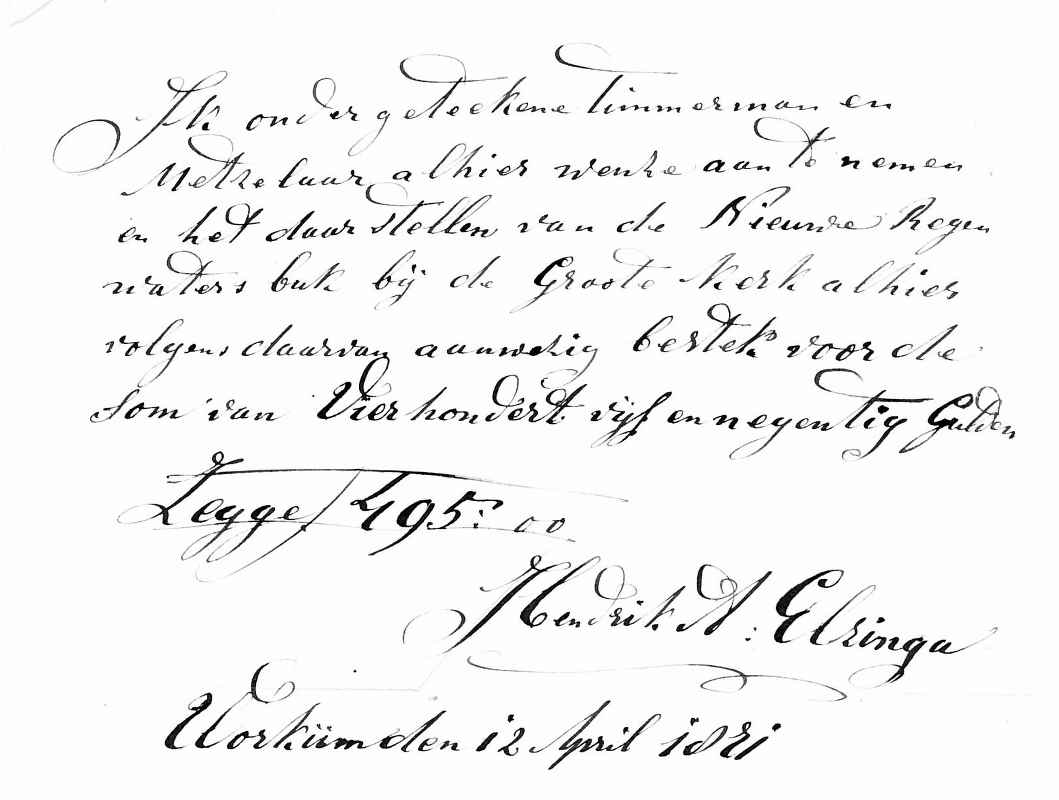 Ik ondergeteekene timmerman en
Metzelaar alhier wenze aan te nemen
en het daarstellen van de Nieuwe Regen
waters bak bij de Groote Kerk alhier
volgens daarvan aanwezig bestek voor de
som van Vierhondert vijf en negentig Gulden
Zegge f 495:00
Hendrik A: Elzinga
Workum den 12 April